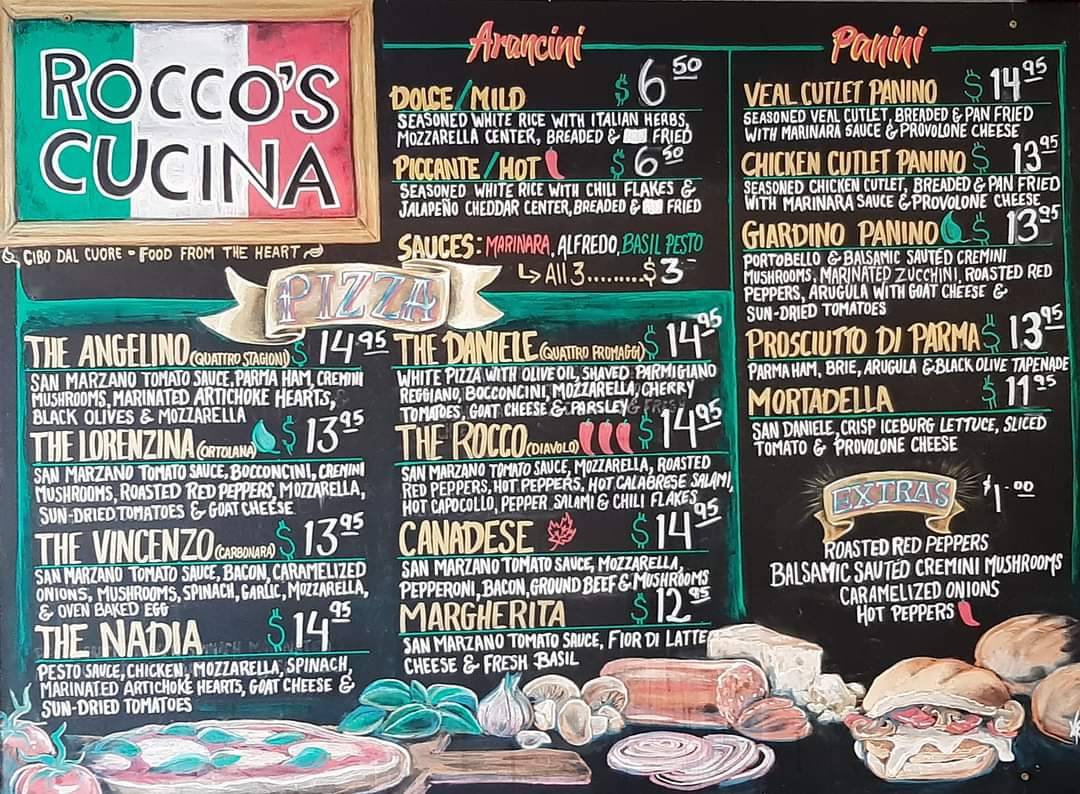 ROCCO'S
CUCINA
CIBO DAL CUORE - FOOD FROM THE HEART
Arancini
DOLCE/MILD $6.50
SEASONED WHITE RICE WITH ITALIAN HERBS,
MOZZARELLA CENTER, BREADED & FRIED
PICCANTE/HOT $6.50
SEASONED WHITE RICE WITH CHILI FLAKES &
JALAPEÑO CHEDDAR CENTER, BREADED & FRIED
SAUCES: MARINARA, ALFREDO, BASIL PESTO
ALL 3.........$3
PIZZA
THE ANGELINO (QUATTRO STAGIONI) $14.95
SAN MARZANO TOMATO SAUCE, PARMA HAM, CREMINI
MUSHROOMS, MARINATED ARTICHOKE HEARTS,
BLACK OLIVES & MOZZARELLA
THE LORENZINA (ORTOLANA) $13.95
SAN MARZANO TOMATO SAUCE, BOCCONCINI, CREMINI
MUSHROOMS, ROASTED RED PEPPERS, MOZZARELLA,
SUN-DRIED TOMATOES & GOAT CHEESE
THE VINCENZO (CARBONARA) $13.95
SAN MARZANO TOMATO SAUCE, BACON, CARAMELIZED
ONIONS, MUSHROOMS, SPINACH, GARLIC, MOZZARELLA,
& OVEN BAKED EGG
THE NADIA $14.95
PESTO SAUCE, CHICKEN, MOZZARELLA, SPINACH,
MARINATED ARTICHOKE HEARTS, GOAT CHEESE &
SUN-DRIED TOMATOES
THE DANIELE (QUATTRO FROMAGGI) $14.95
WHITE PIZZA WITH OLIVE OIL, SHAVED PARMIGIANO
REGGIANO, BOCCONCINI, MOZZARELLA, CHERRY
TOMATOES, GOAT CHEESE & PARSLEY
THE ROCCO (DIAVOLO) $14.95
SAN MARZANO TOMATO SAUCE, MOZZARELLA, ROASTED
RED PEPPERS, HOT PEPPERS, HOT CALABRESE SALAMI,
HOT CAPOCOLLO, PEPPER SALAMI & CHILI FLAKES
CANADESE $14.95
SAN MARZANO TOMATO SAUCE, MOZZARELLA,
PEPPERONI, BACON, GROUND BEEF & MUSHROOMS
MARGHERITA $12.95
SAN MARZANO TOMATO SAUCE, FIOR DI LATTE
CHEESE & FRESH BASIL
Panini
VEAL CUTLET PANINO $14.95
SEASONED VEAL CUTLET, BREADED & PAN FRIED
WITH MARINARA SAUCE & PROVOLONE CHEESE
CHICKEN CUTLET PANINO $13.95
SEASONED CHICKEN CUTLET, BREADED & PAN FRIED
WITH MARINARA SAUCE & PROVOLONE CHEESE
GIARDINO PANINO $13.95
PORTOBELLO & BALSAMIC SAUTÉD CREMINI
MUSHROOMS, MARINATED ZUCCHINI, ROASTED RED
PEPPERS, ARUGULA WITH GOAT CHEESE &
SUN-DRIED TOMATOES
PROSCIUTTO DI PARMA $13.95
PARMA HAM, BRIE, ARUGULA & BLACK OLIVE TAPENADE
MORTADELLA $11.95
SAN DANIELE, CRISP ICEBURG LETTUCE, SLICED
TOMATO & PROVOLONE CHEESE
EXTRAS $1.00
ROASTED RED PEPPERS
BALSAMIC SAUTED CREMINI MUSHROOMS
CARAMELIZED ONIONS
HOT PEPPERS